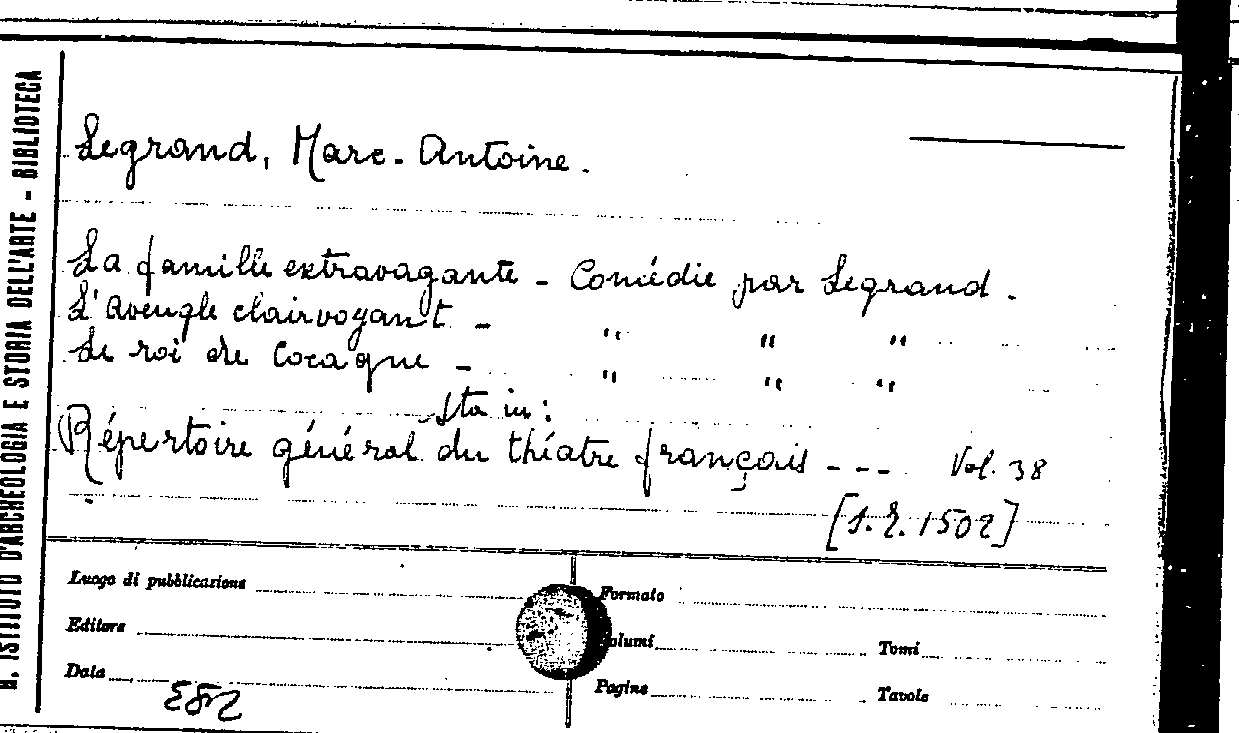 R. ISTITUTO D'ARCHEOLOGIA E STORIA DELL'ARTE - BIBLIOTECA
Legrand, Marc-Antoine.
La famille extravagante - Comédie par Legrand.
L'Aveugle clairvoyant - " " "
Le roi de Cocagne - " " "
Sta in:
Répertoire général du théatre français --- Vol. 38
Luogo di pubblicazione Formato
Editore Volumi Tomi
Data Pagine Tavole